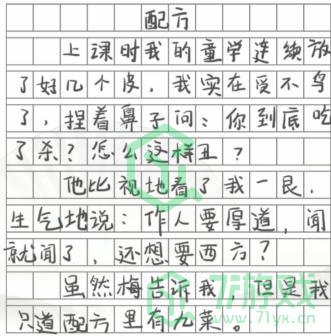 配方
上课时我的童学连续放
了好几个皮，我实在受不鸟
了，捏着鼻子问：你到底吃
了杀？怎么这样丑？
他比视地看了我一艮，
生气地说：作人要厚道，闻
就闻了，还想要西方？
虽然梅告诉我，但是我
只道配方里有九菜
71游戏
www.71yx.com